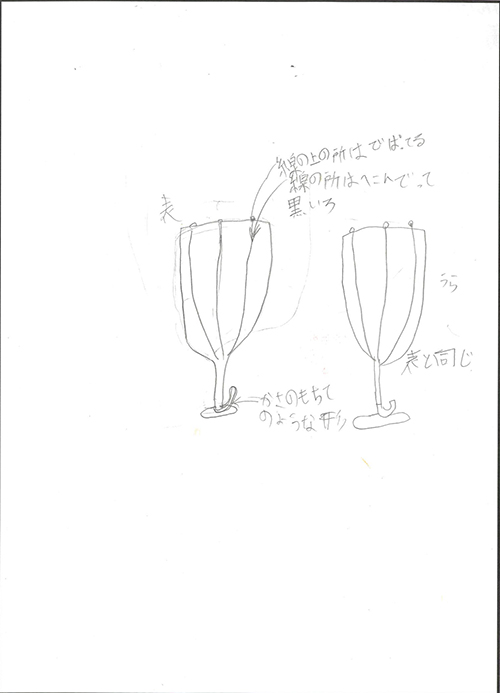 線の上の所はでばてる
線の所はへこんでって
黒いろ
表
うら
表と同じ
かさのもちて
のような形